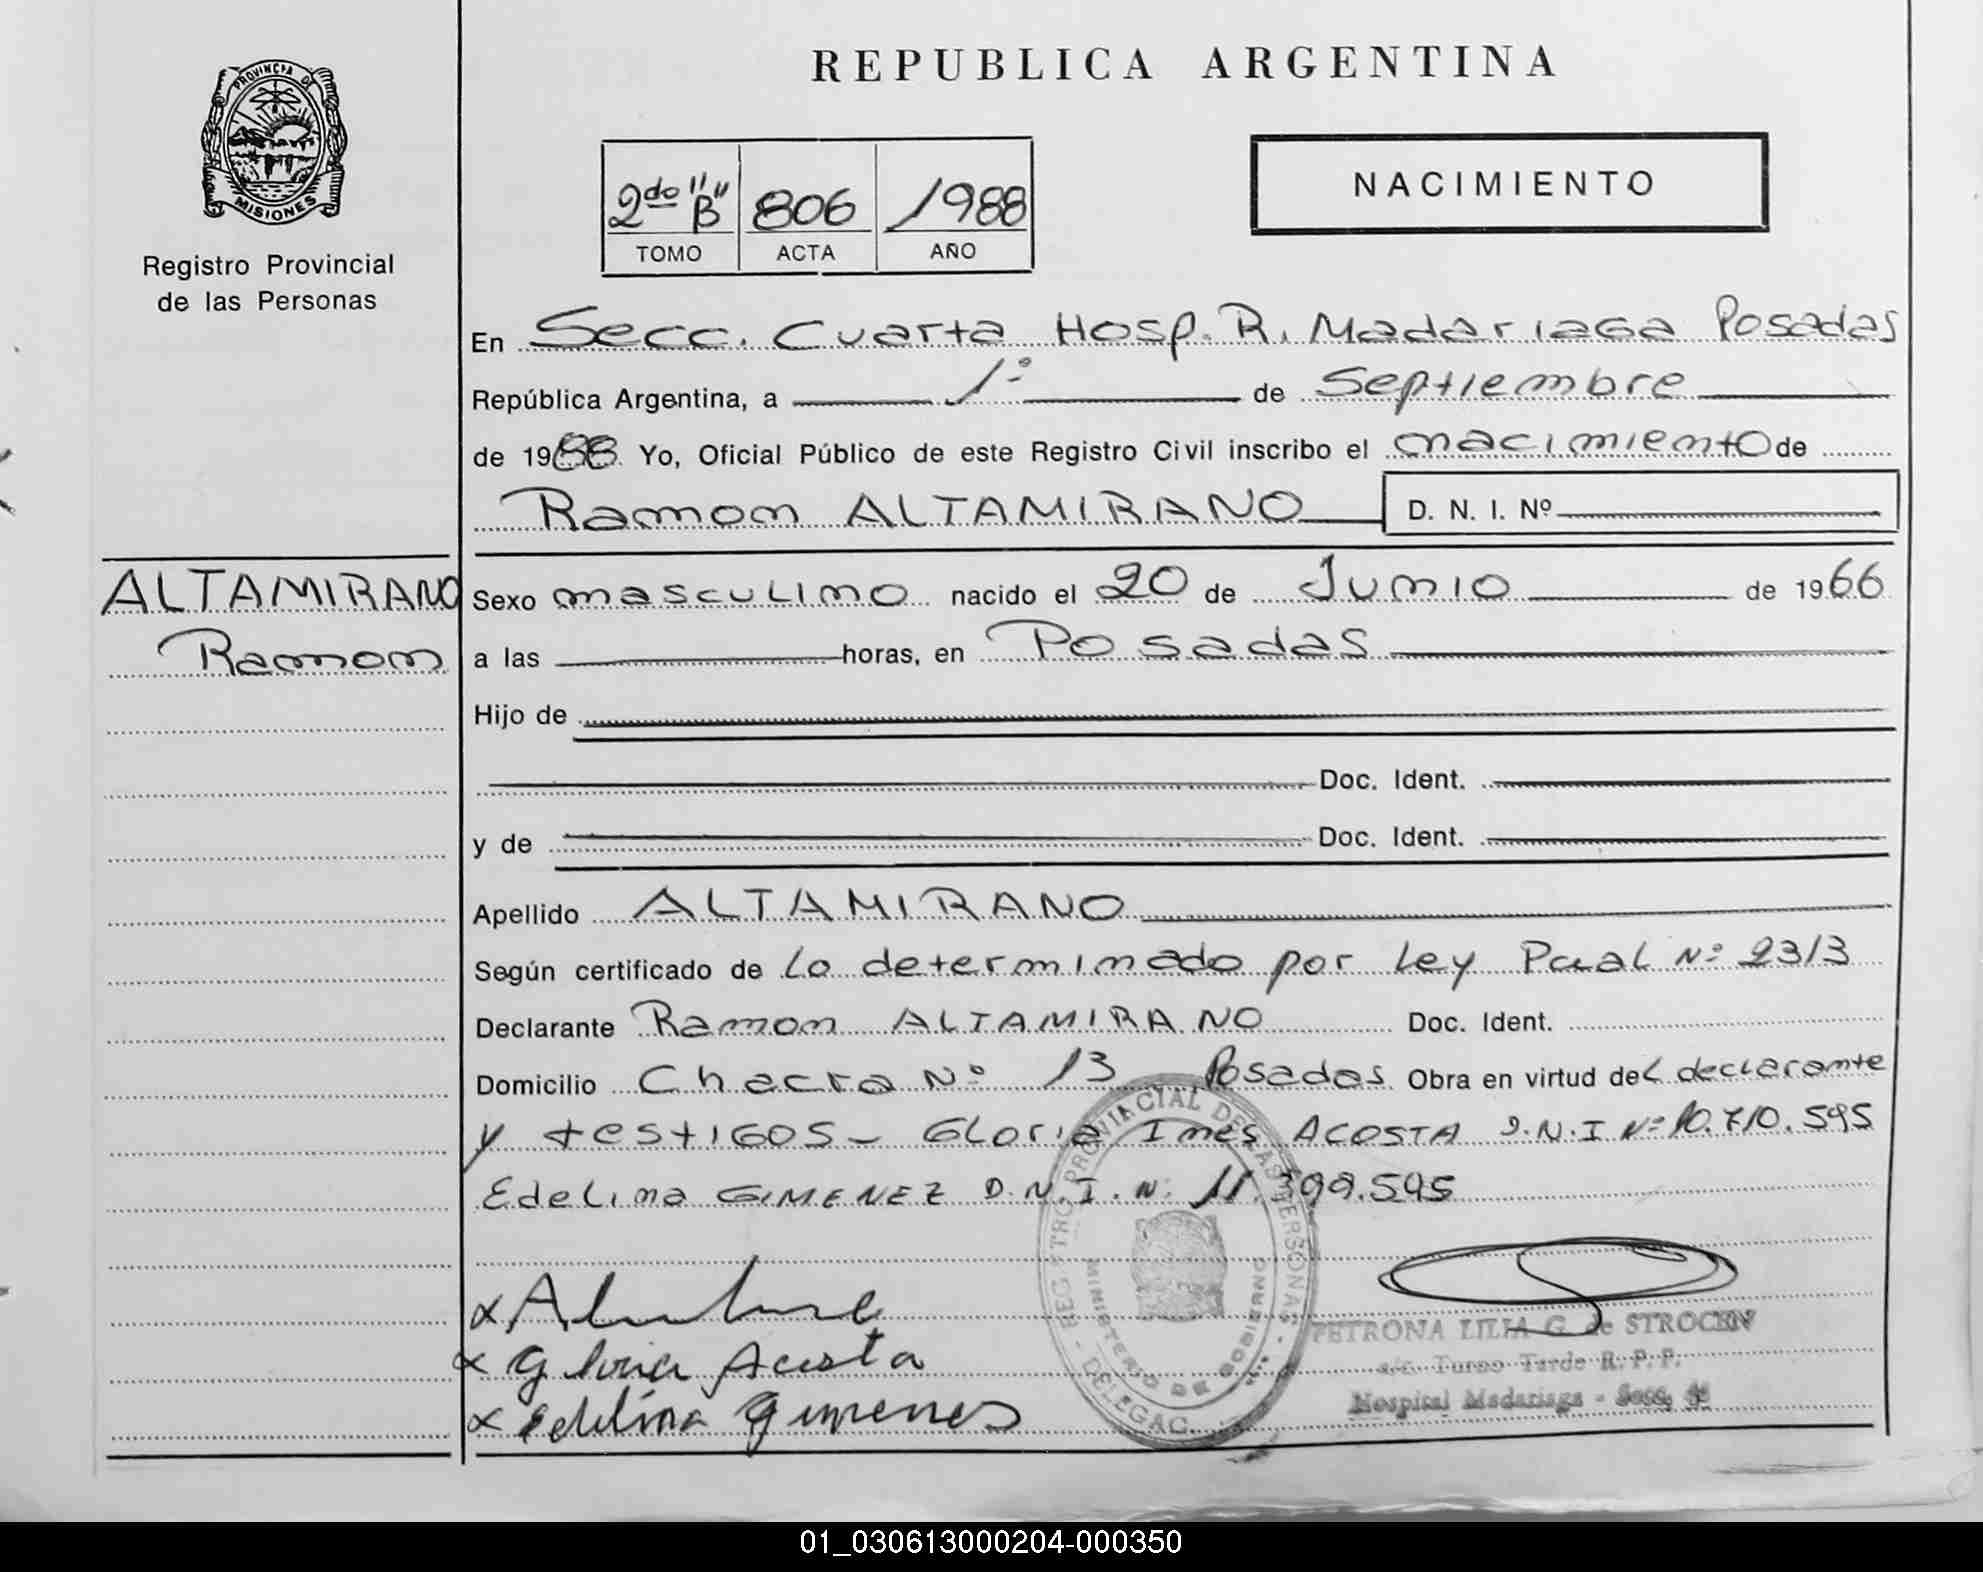 REPUBLICA ARGENTINA
PROVINCIA DE
MISIONES
Registro Provincial
de las Personas
2do "B" 806 1988
TOMO ACTA AÑO
NACIMIENTO
En Secc. Cuarta Hosp. R. Madariaga Posadas
República Argentina, a 1º de Septiembre
de 1988 Yo, Oficial Público de este Registro Civil inscribo el nacimiento de
Ramon ALTAMIRANO D. N. I. Nº
ALTAMIRANO
Ramon
Sexo masculino nacido el 20 de Junio de 1966
a las horas, en Posadas
Hijo de
Doc. Ident.
y de Doc. Ident.
Apellido ALTAMIRANO
Según certificado de Lo determinado por Ley Pcial Nº 2313
Declarante Ramon ALTAMIRANO Doc. Ident.
Domicilio Chacra Nº 13 Posadas Obra en virtud del declarante
y testigos - Gloria Ines ACOSTA D.N.I Nº 10.710.595
Edelina GIMENEZ D.N.I.N: 11.399.595
REGISTRO PROVINCIAL DE LAS PERSONAS - DELEGAC.
MINISTERIO DE GOBIERNO
x Gloria Acosta
x Edelina Gimenes
PETRONA LILIA G. de STROCEN
a/c. Turno Tarde R. P. P.
Hospital Madariaga - Secc. 4ª
01_030613000204-000350